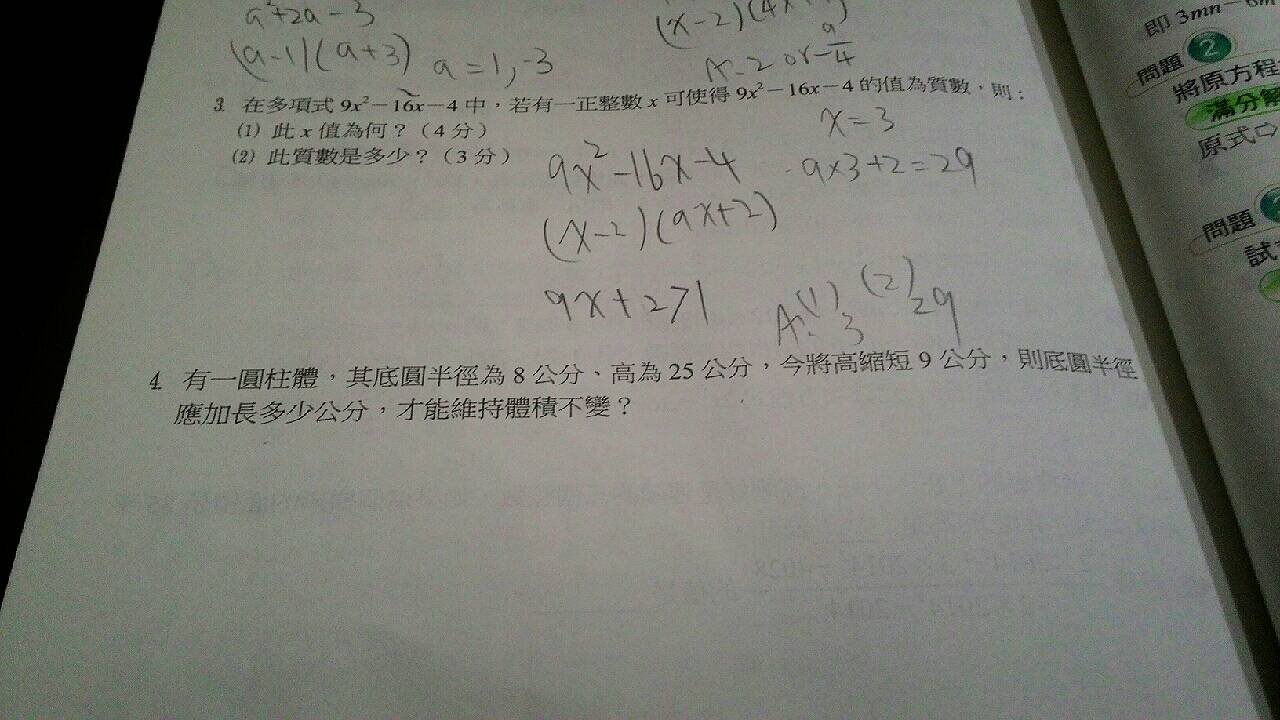 a²+2a-3
(a-1)(a+3) a=1,-3
(x-2)(4x
即 3mn-6m
問題 2
將原方程
滿分解
原式⇨
問題
試
3 在多項式 9x²-16x-4 中,若有一正整數 x 可使得 9x²-16x-4 的值為質數,則:
(1) 此 x 值為何?(4 分)
(2) 此質數是多少?(3 分)
x=3
9x²-16x-4
9×3+2=29
(x-2)(9x+2)
9x+271
A:(1) 3 (2) 29
4 有一圓柱體,其底圓半徑為 8 公分、高為 25 公分,今將高縮短 9 公分,則底圓半徑
應加長多少公分,才能維持體積不變?